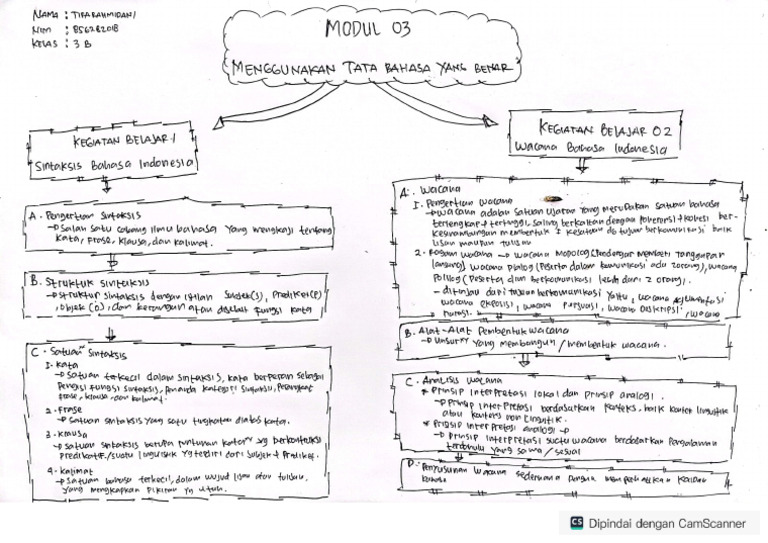 NAMA : TIFARAHMIDANI
NIM : 856282018
KELAS : 3 B
MODUL 03
MENGGUNAKAN TATA BAHASA YANG BENAR
KEGIATAN BELAJAR 1
Sintaksis Bahasa Indonesia
A. Pengertian Sintaksis
→ Salah satu cabang ilmu bahasa yang mengkaji tentang
kata, frose, klausa, dan kalimat.
B. Struktur Sintaksis
→ Struktur sintaksis dengan istilah Subjek(S), Prediket(P)
, objek (O), dan keterangan atau disebut fungsi kata
C. Satuan Sintaksis
1. Kata
→ Satuan terkecil dalam sintaksis, kata berperan sebagai
Pengisi fungsi sintaksis, Penanda kategori sintaksis, Perangkat
frose, klausa, dan kalimat.
2. Frose
→ Satuan sintaksis yang satu tingkatan diatas kata.
3. Klausa
→ Satuan sintaksis berupa runtunan kata yg berkonstruksi
predikatif / suatu linguistik yg terdiri dari subjek + Prediket.
4. Kalimat
→ Satuan bahasa terkecil, dalam wujud lisan atau tulisan,
yang mengungkapkan pikiran yg utuh.
KEGIATAN BELAJAR 02
Wacana Bahasa Indonesia
A. Wacana
1. Pengertian wacana
→ Wacana adalah satuan ujaran yang merupakan satuan bahasa
terlengkap + tertinggi, saling berkaitan dengan koherensi + kohesi ber-
kesinambungan membentuk 1 kesatuan do tujuan berkomunikasi baik
lisan maupun tulisan
2. Ragam wacana → wacana Monolog (Pendengar memberi tanggapan
langsung) wacana Dialog (Peserta dalam komunikasi ada 2 orang), wacana
Polilog (Peserta dlm berkomunikasi lebih dari 2 orang).
- ditinjau dari tujuan berkomunikasi yaitu, wacana Argumentasi
wacana eksposisi, wacana persuasi, wacana Deskripsi, wacana
narasi.
B. Alat-Alat Pembentuk wacana
→ Unsur yang membangun / membentuk wacana.
C. Analisis wacana
* Prinsip Interpretasi lokal dan prinsip analogi.
→ Prinsip interpretasi berdasarkan konteks, baik konteks linguistik
atau konteks non linguistik.
* Prinsip Interpretasi analogi →
→ Prinsip interpretasi suatu wacana berdasarkan Pengalaman
terdahulu yang sama / sesuai
D. Penyusunan wacana sederhana dengan memperhatikan kaidah
bahasa
CS Dipindai dengan CamScanner